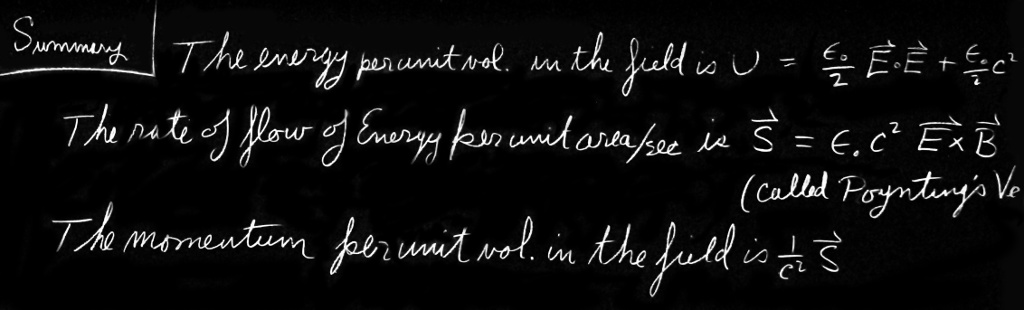 Summary The energy per unit vol. in the field is U = ε₀/2 E⃗·E⃗ + ε₀/2 c²
The rate of flow of Energy per unit area/sec is S⃗ = ε₀c² E⃗×B⃗
(called Poynting's Ve
The momentum per unit vol. in the field is 1/c² S⃗